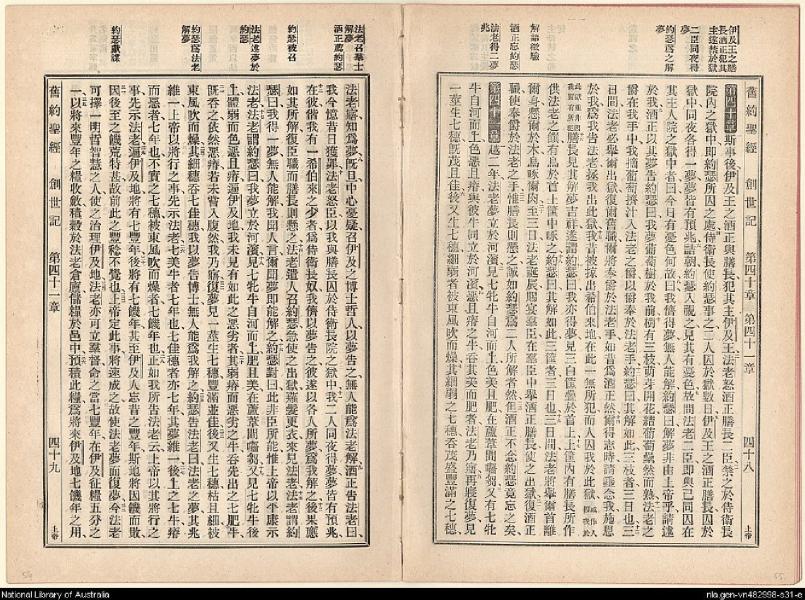 伊及王之膳
長酒正犯其
主遂禁於獄
二臣同夜得
夢
約瑟爲之解
夢
解語徵驗
酒正忘約瑟
法老得二夢
兆
舊約聖經 創世記 第四十章 第四十一章 四十八 上帝
第四十章 斯事後伊及王之酒正與膳長犯其主伊及王法老怒酒正膳長二臣禁之於侍衛長
院內之獄中即約瑟所囚之處侍衛長使約瑟事之二人囚於獄數日伊及王之酒正膳長囚於
獄中同夜各得一夢夢皆有預兆詰朝約瑟入覘之見其有憂色故問法老二臣即與己同囚在
其主人院之獄中者曰今日有憂色何故曰我儕得夢無人能解約瑟曰解夢非由上帝乎請遂
於我酒正以其夢告約瑟曰我夢葡萄樹於我前樹有三枝萌芽開花諸葡萄纍然而熟法老之
爵在我手中我摘葡萄擠汁入法老之爵以爵奉於法老手約瑟曰其解如此三枝者三日也三
日間法老必舉爾出獄復爾舊職爾將奉爵於法老手如昔爲酒正然爾得志時請垂念我施恩
於我爲我告法老援我出此獄我昔被掠出希伯來地在此一無所犯而人囚我於此獄
膳長見其解夢吉祥遂謂約瑟曰我亦得夢見三白筐疊於首上上筐內有膳長所作
供法老之饌有鳥於首上筐中啄之約瑟曰其解如此三筐者三日也三日間法老將舉爾首離
爾身懸爾於木鳥啄爾肉至三日法老誕辰賜宴羣臣在羣臣中舉酒正膳長使之出獄復酒正
職使奉爵於法老之手惟膳長則懸之誠如約瑟爲二人所解者然但酒正不念約瑟竟忘之矣
第四十一章 越二年法老夢立於河濱見七牝牛自河而上色美且肥在蘆葦間囓芻又有七牝
牛自河而上色惡且瘠與彼牛同立於河濱惡且瘠之牛吞其美而肥者法老乃寤再寢復夢見
一莖生七穗旣茂且佳後又生七穗細弱者被東風吹而燥其細弱之七穗吞茂盛豐滿之七穗
法老召博士
解夢
酒正薦約瑟
約瑟被召
法老述夢於
約瑟
約瑟爲法老
解夢
約瑟獻謀
法老寤知爲夢旣旦中心憂疑召伊及之博士哲人以夢告之無人能爲法老解酒正告法老曰
我今憶昔日獲罪法老怒臣以我與膳長囚於侍衛長院之獄中我二人同夜得夢夢皆有預兆
在彼偕我有一希伯來之少者爲侍衛長奴我儕以夢告之彼遂以各人所夢爲我解之後果應
如其所解復臣職而膳長則懸之法老遣人召約瑟急使之出獄薙髮更衣來見法老法老謂約
瑟曰我得一夢無人能解我聞人言爾聞夢即能解之約瑟對曰此非臣所能惟上帝以平康示
法老法老謂約瑟曰我夢立於河濱見七牝牛自河而上肥且美在蘆葦間囓芻又見七牝牛後
上體弱而色惡且瘠遍伊及地我未見有如此之惡劣者其弱瘠而惡劣之牛吞先出之七肥牛
旣吞之依然惡瘠若未嘗入腹然我乃寤復夢見一莖生七穗豐滿並佳後又生七穗枯且細被
東風吹而燥細弱之七穗吞七佳穗我以夢告博士無人能爲我解之約瑟告法老曰法老之夢其兆
維一上帝以將行之事先示法老七美牛者七年也七佳穗者亦七年其夢維一後上之七牛瘠
而惡者七年也不實之七穗被東風吹而燥者七饑年也正如我所告法老云上帝以其將行之
事先示法老遍伊及地將有七豐年後將有七饑年其至伊及人忘昔之豐年斯地將因饑而敗
因後至之饑克特甚故前此之豐稔不覺也上帝定此事將速成之故使法老夢而復夢今法老
可擇一明哲智慧之人使之治理伊及地法老亦可立羣督命之當七豐年在伊及征糧五分之
一以將來豐年之糧收斂積穀於法老倉廩儲糧於邑中預積此糧爲將來伊及地七饑年之用
舊約聖經 創世記 第四十一章 四十九 上帝
National Library of Australia
nla.gen-vn482998-s31-e